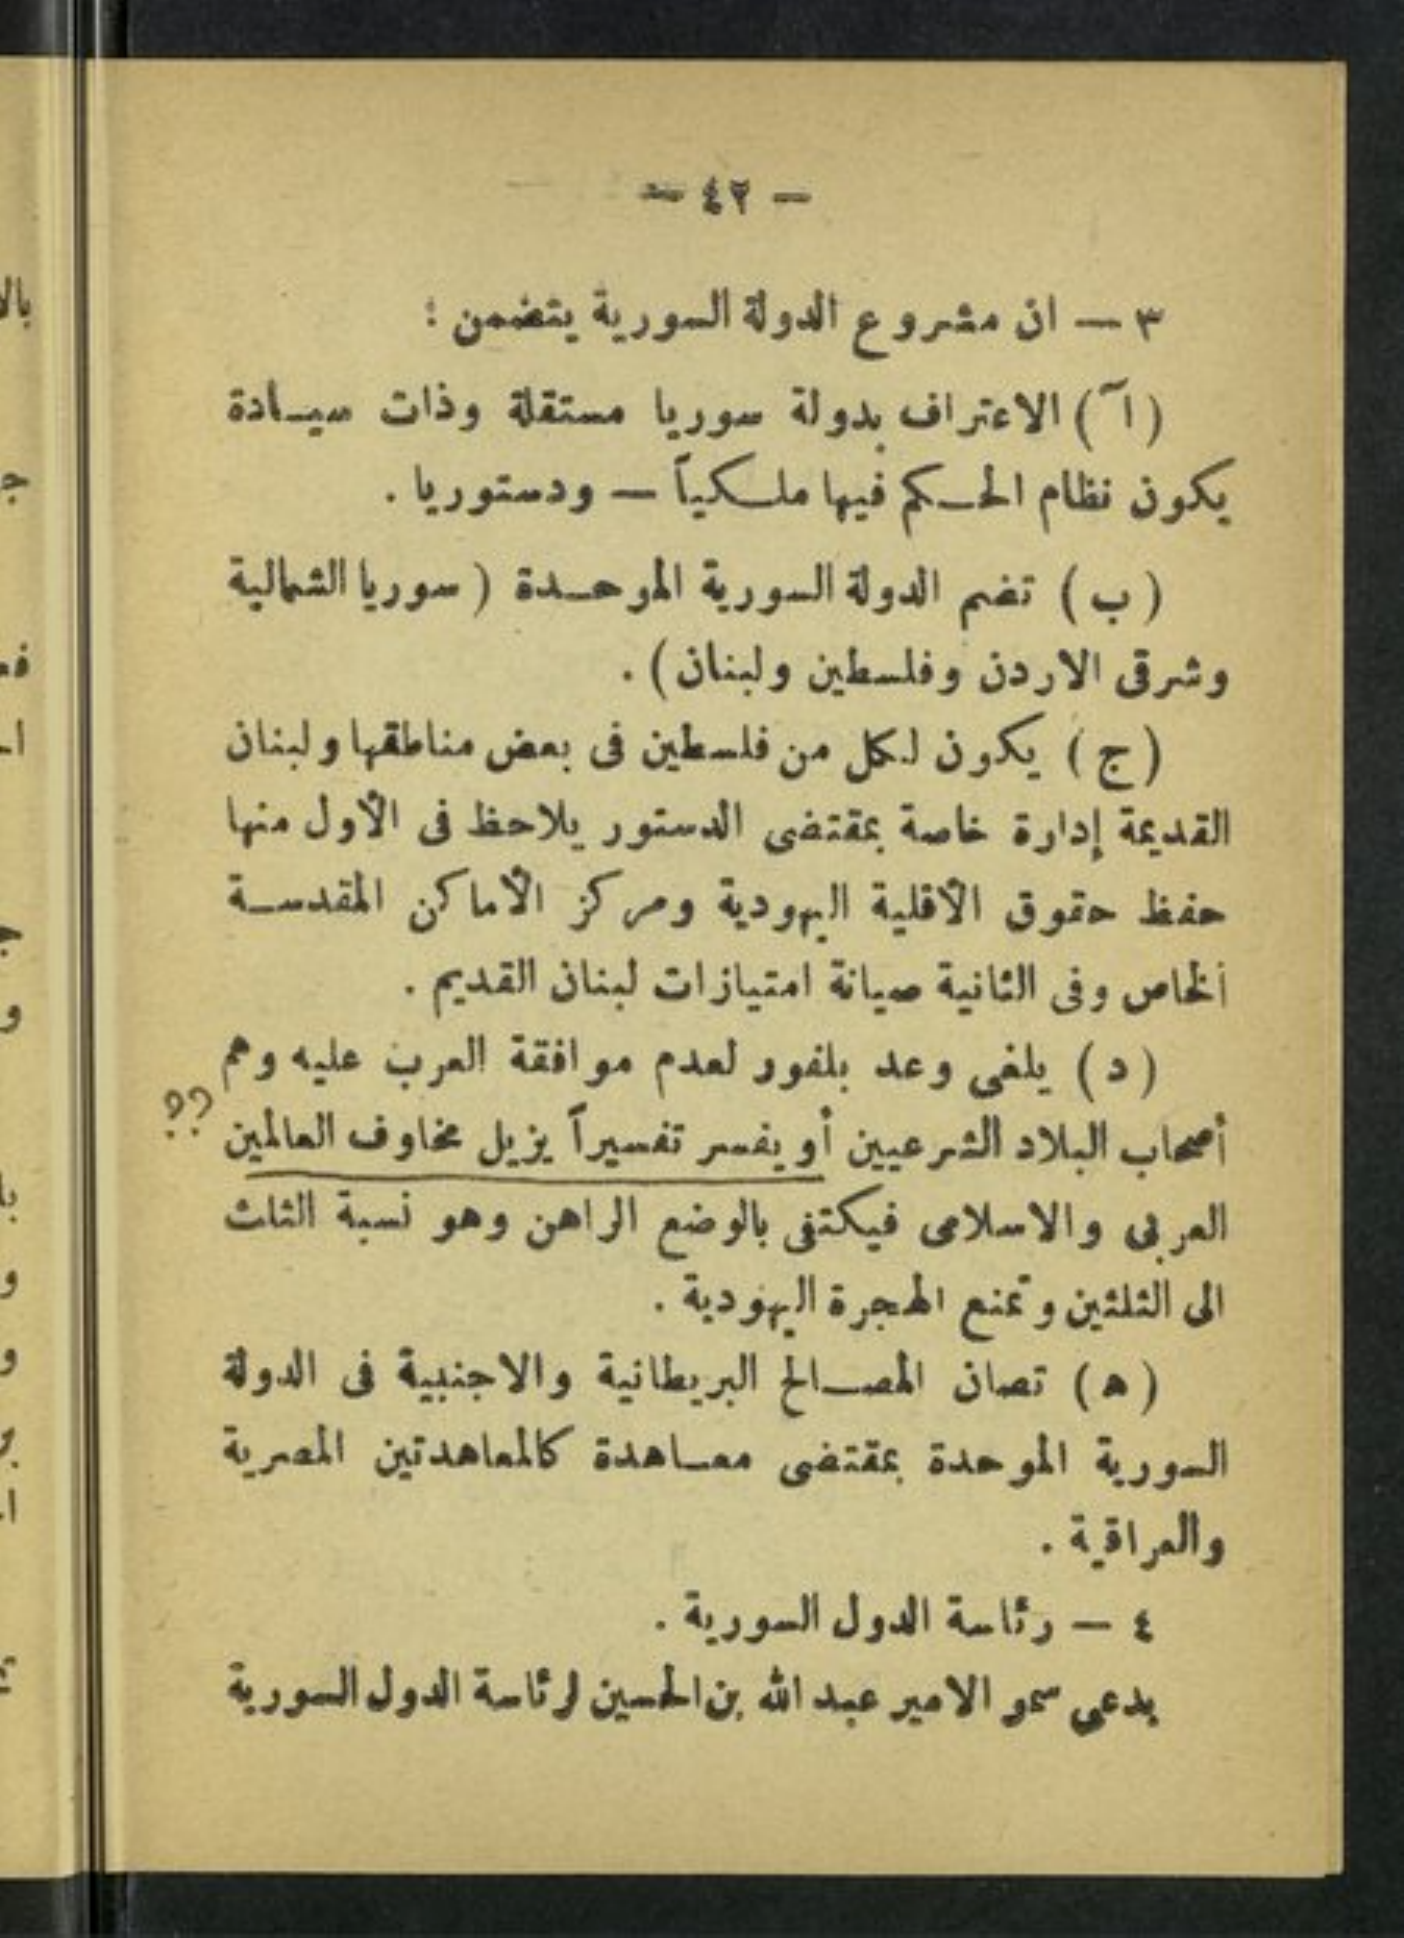 — ٤٢ —
٣ — ان مشروع الدولة السورية يتضمن :
( آ ) الاعتراف بدولة سوريا مستقلة وذات سيادة
يكون نظام الحكم فيها ملكياً — ودستوريا .
( ب ) تضم الدولة السورية الموحدة ( سوريا الشمالية
وشرقى الاردن وفلسطين ولبنان ) .
( ج ) يكون لكل من فلسطين فى بعض مناطقها ولبنان
القديمة إدارة خاصة بمقتضى الدستور يلاحظ فى الأول منها
حفظ حقوق الأقلية اليهودية ومركز الأماكن المقدسة
الخاص وفى الثانية صيانة امتيازات لبنان القديم .
( د ) يلغى وعد بلفور لعدم موافقة العرب عليه وهم
أصحاب البلاد الشرعيين أو يفسر تفسيراً يزيل مخاوف العالمين ؟؟
العربى والاسلامى فيكتفى بالوضع الراهن وهو نسبة الثلث
الى الثلثين وتمنع الهجرة اليهودية .
( ه ) تصان المصالح البريطانية والاجنبية فى الدولة
السورية الموحدة بمقتضى معاهدة كالمعاهدتين المصرية
والعراقية .
٤ — رئاسة الدول السورية .
يدعى سمو الامير عبد الله بن الحسين لرئاسة الدول السورية